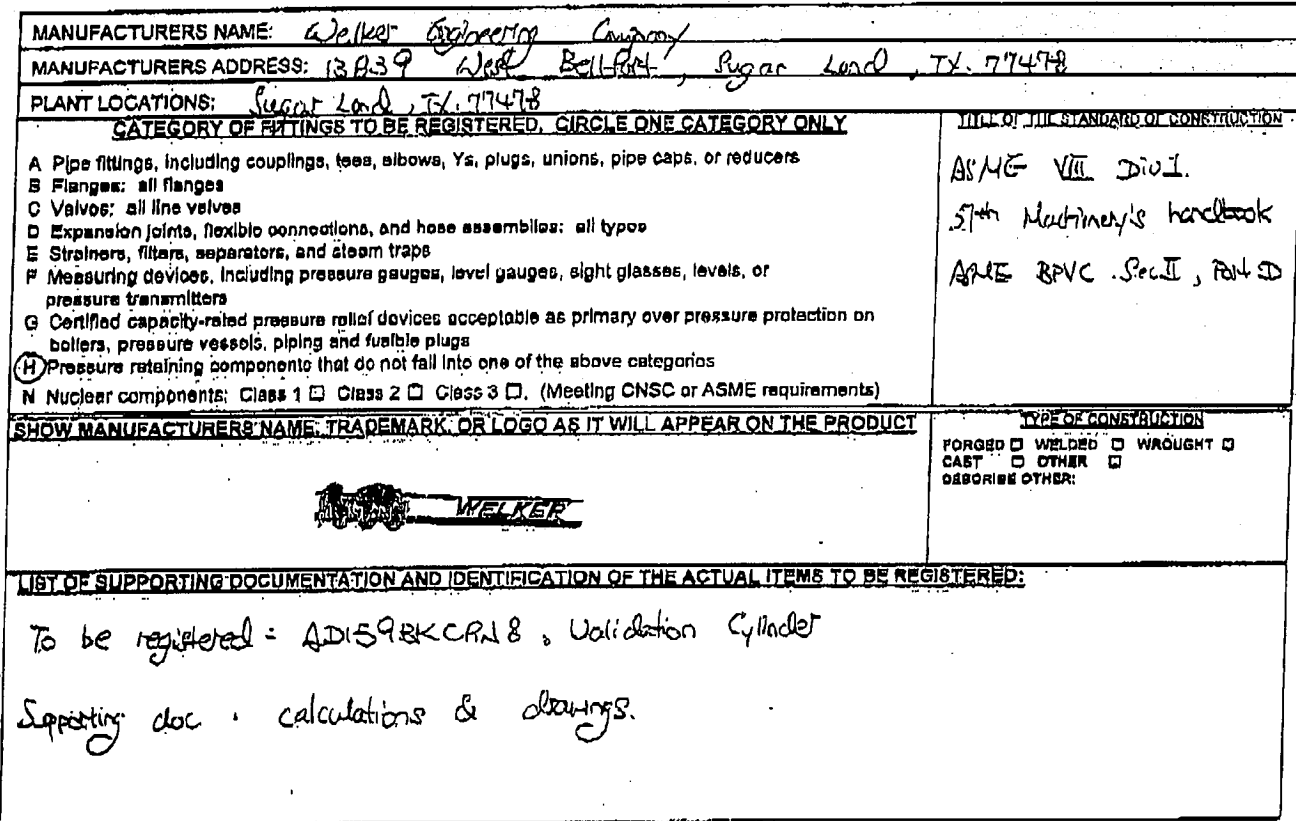 MANUFACTURERS NAME: Welker Engineering Company
MANUFACTURERS ADDRESS: 13839 West Bellfort, Sugar Land, TX. 77478
PLANT LOCATIONS: Sugar Land, TX. 77478
CATEGORY OF FITTINGS TO BE REGISTERED, CIRCLE ONE CATEGORY ONLY
A Pipe fittings, including couplings, tees, elbows, Ys, plugs, unions, pipe caps, or reducers
B Flanges: all flanges
C Valves: all line valves
D Expansion joints, flexible connections, and hose assemblies: all types
E Strainers, filters, separators, and steam traps
F Measuring devices, including pressure gauges, level gauges, sight glasses, levels, or
pressure transmitters
G Certified capacity-rated pressure relief devices acceptable as primary over pressure protection on
boilers, pressure vessels, piping and fusible plugs
H Pressure retaining components that do not fall into one of the above categories
N Nuclear components: Class 1 □ Class 2 □ Class 3 □. (Meeting CNSC or ASME requirements)
TITLE OF THE STANDARD OF CONSTRUCTION
ASME VIII Div 1.
Machinery's handbook
ASME BPVC. Sec. II, Part D
SHOW MANUFACTURERS NAME, TRADEMARK, OR LOGO AS IT WILL APPEAR ON THE PRODUCT
WELKER
TYPE OF CONSTRUCTION
FORGED □ WELDED □ WROUGHT □
CAST □ OTHER □
DESCRIBE OTHER:
LIST OF SUPPORTING DOCUMENTATION AND IDENTIFICATION OF THE ACTUAL ITEMS TO BE REGISTERED:
To be registered = AD159BKCRN8, Validation Cylinder
Supporting doc. calculations & drawings.